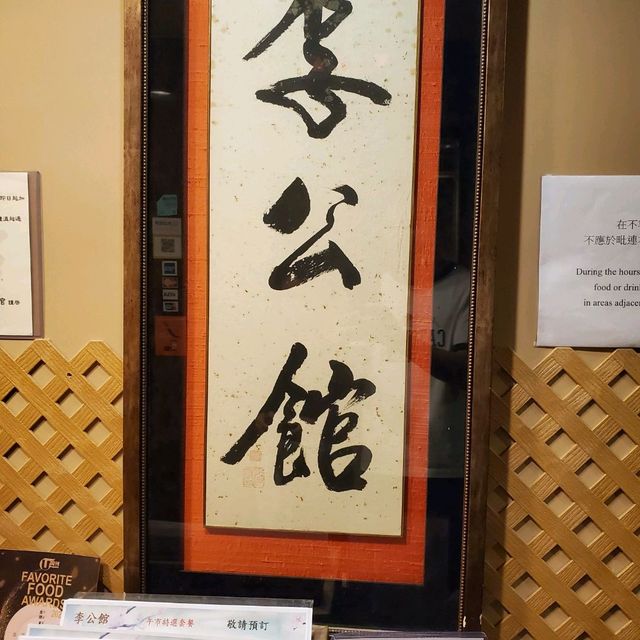 李
公
館
即日起加
在不
不應於毗連
During the hours
food or drin
in areas adjace
FAVORITE
FOOD
AWARDS
李公館 午市特選套餐 敬請預訂